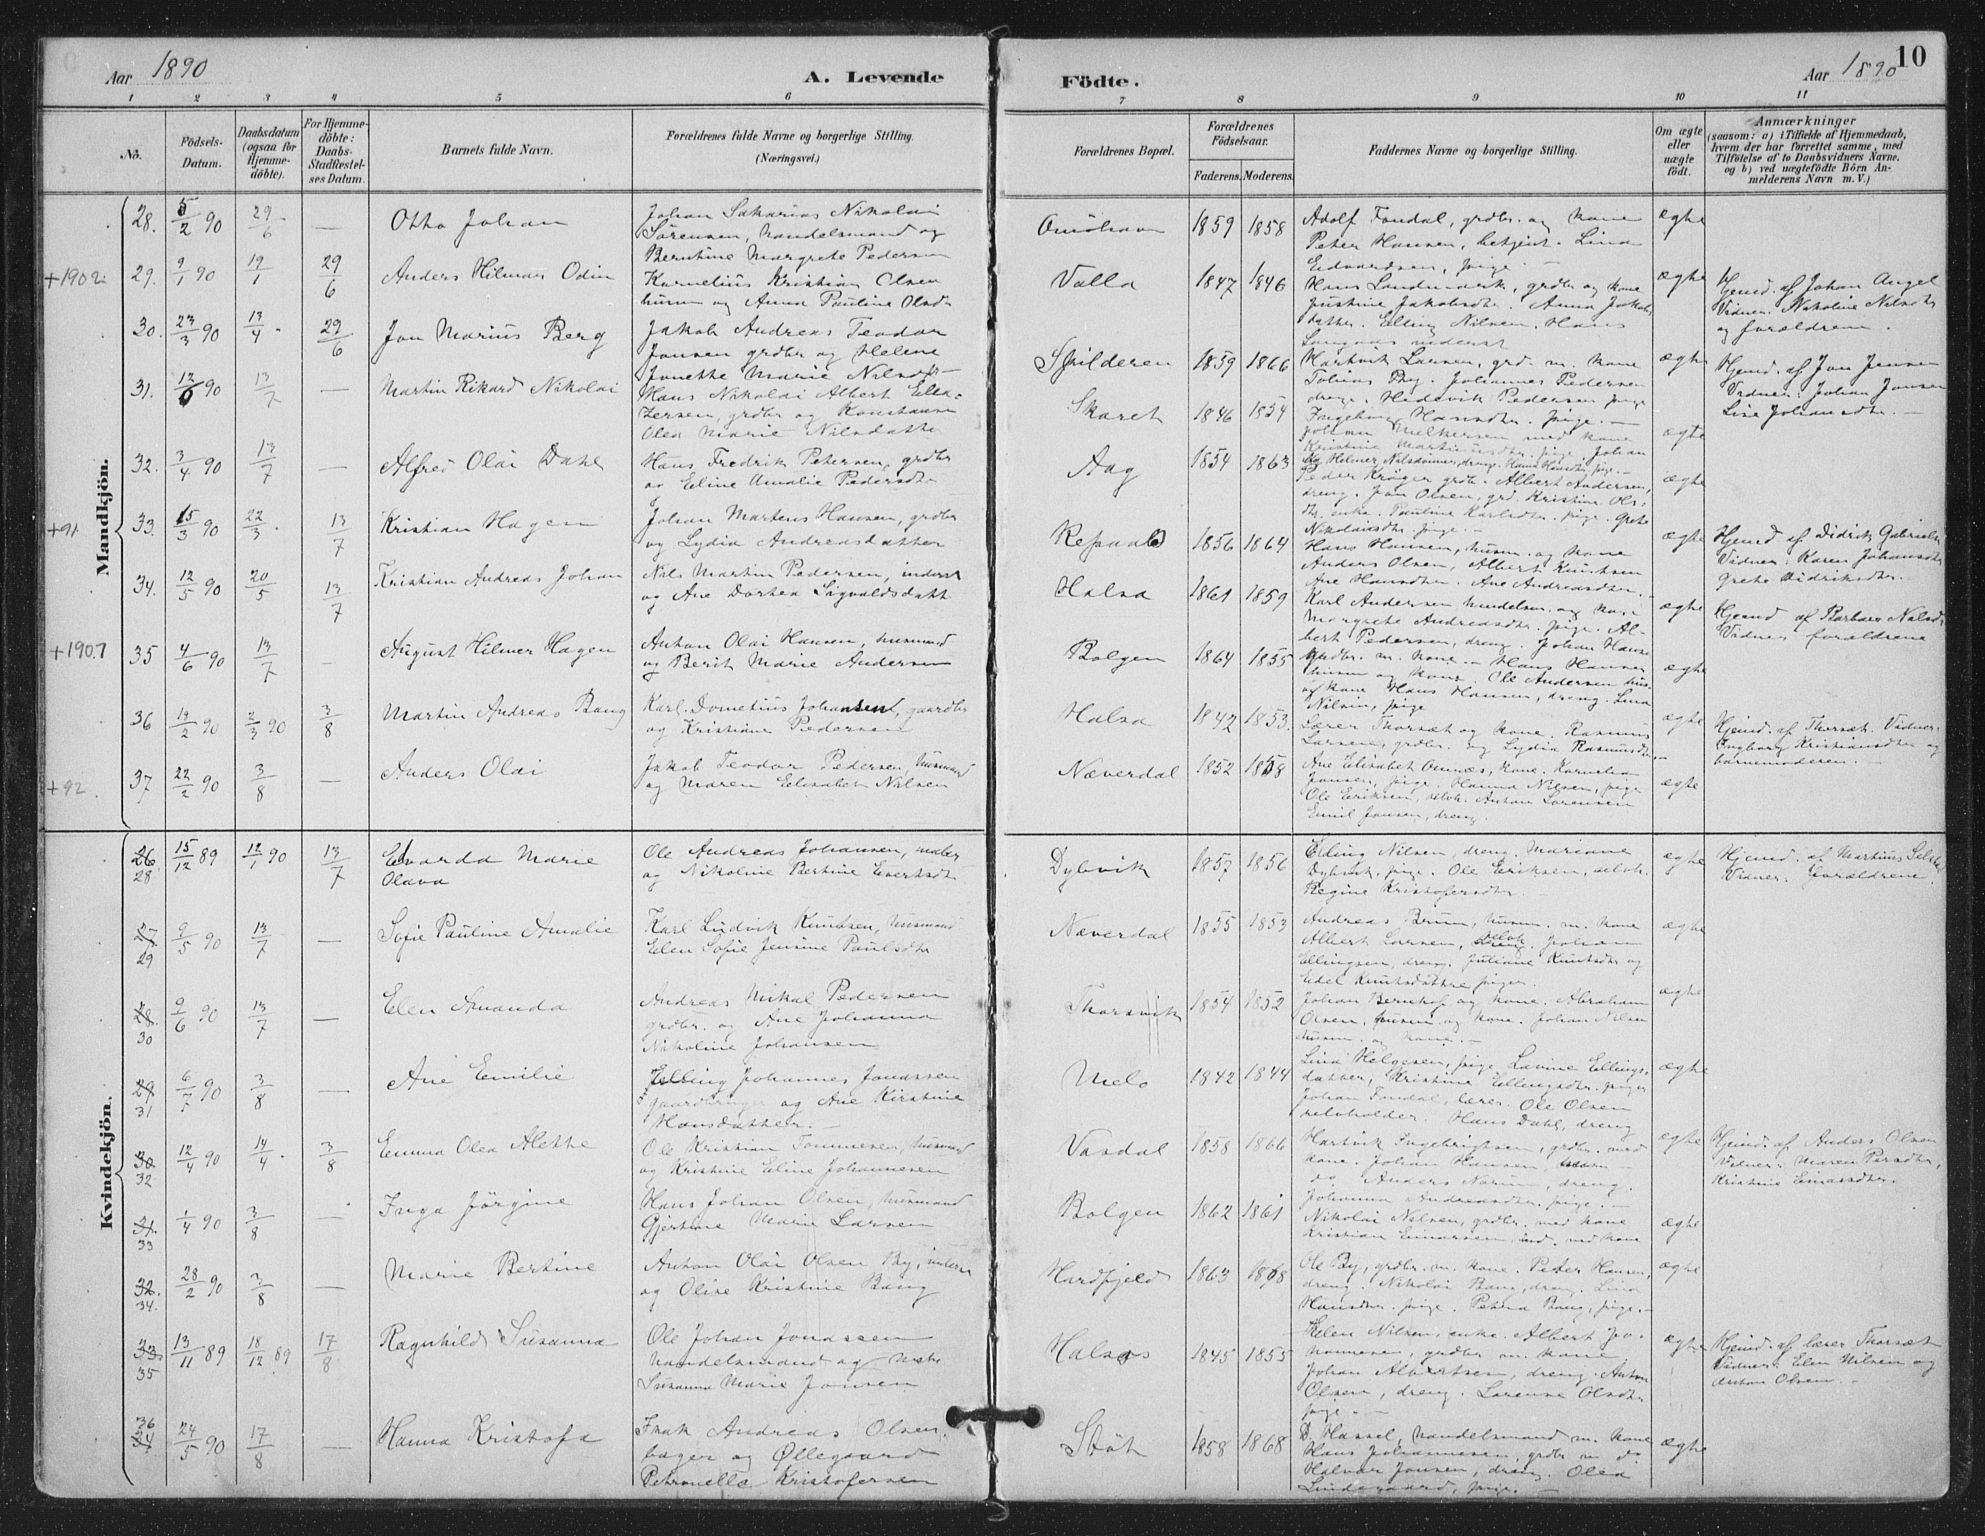 Aar 1890
A. Levende
Födte.
Aar 1890
10
1 2 3 4 5 6 7 8 9 10 11
No.
Födsels-Datum.
Daabsdatum (ogsaa för Hjemme-döbte).
For Hjemme-döbte: Daabs-Stadfæstel-ses Datum.
Barnets fulde Navn.
Forældrenes fulde Navne og borgerlige Stilling. (Næringsvei.)
Forældrenes Bopæl.
Forældrenes Födselsaar.
Faderens. Moderens.
Faddernes Navne og borgerlige Stilling.
Om ægte eller uægte födt.
Anmærkninger (saasom: a) i Tilfælde af Hjemmedaab, hvem der har forrettet samme, med Tilföielse af to Daabsvidners Navne. og b) ved uægtefödte Börn An-melderens Navn m. V.)
Mandkjön.
28. 5/2 90 29/6 — Otto Johan
Johan Sakarias Nikolai
Sørensen, handelsmand og
Berntine Margrete Pedersen
1859 1858
Adolf Fondal, grdbr. og kone
Peter Hansen, betjent. Lina
Edvardsen, pige. —
ægte
+1902. 29. 9/1 90 19/1 29/6 Anders Hilmar Odin
Kornelius Kristian Olsen
husm og Anna Pauline Olsdr
Valla 1847 1846
Hans Landmark, grdbr og kone
Justine Jakobsdtr. Anna Jakobs
datter. Elling Nilsen. Hans
ægte
Hjemd. af Johan Angel
Vidner. Nikoline Nilsdtr
og forældrene.
30. 23/3 90 13/4 29/6 Jon Marius Berg
Jakob Andreas Teodor
Jonsen grdbr og Helene
Jonette Marie Nilsdtr
Spilderen 1859 1866
Hartvik Larsen, grd. m. kone
Tobias By. Johannes Pedersen
dreng. Hedevik Pedersen pige
ægte
Hjemd. af Jon Jensen
Vidner. Johan Jonsen
Lise Johansdtr. —
31. 12/6 90 13/7 — Martin Rikard Nikolai
Hans Nikolai Albert Elea-
zersen, grdbr og Konstanse
Olea Marie Nilsdatter
Skaret 1846 1854
Ingeborg Hansdtr. pige. —
Johan Melkersen med kone
Kristine Martinusdtr. pige. Johan
ægte
32. 3/4 90 13/7 — Alfred Olai Dahl
Hans Fredrik Petersen, grdbr
og Eline Amalie Pedersdtr
Aag 1854 1863
Peder Krøger grdb. Albert Andersen,
dreng. Jon Olsen, grd. Kristine Ols-
dtr. enke. Pauline Karlsdtr. pige. Grete
Nikolaisdtr. pige. —
ægte
+91 33. 15/3 90 22/3 13/7 Kristian Hagen
Johan Martens Hansen, grdbr
og Lydia Andreasdatter
Repaal 1856 1864
Hans Hansen, husm. og kone
Anders Olsen, Albert Knutsen
Ane Hansdtr. Ane Andreasdtr. —
ægte
Hjemd af Didrik Gabriels.
Vidner. Karen Johansdtr
Grete Didriksdtr.
34. 12/5 90 20/5 13/7 Kristian Andreas Johan
Nils Martin Pedersen, inderst
og Ane Dortea Sigvaldsdatt
Halsa 1861 1859
Karl Andersen handelsm. og kone
Margrete Andreasdtr. pige. Al-
bert Pedersen, dreng. Johan Hanse
ægte
Hjemd af Barbara Nilsd.
Vidner forældrene
+1907 35 4/6 90 13/7 — August Hilmer Hagen
Anton Olai Hansen, husmand
og Berit Marie Andersen
Bolgen 1864 1855
grdbr. m. kone. — Hans Hansen
husm og kone. Ole Andersen hus-
og kone Hans Hansen, dreng. Lina
Nilsen, pige
ægte
36 13/2 90 2/3 90 3/8 Martin Andreas Bang
Karl Dometius Johansen, gaardbr
og Kristiane Pedersen
Halsa 1842 1853.
Lærer Thorsæt og kone. Rasmus
Larsen, grdbr. og Lydia Rasmusdtr. —
ægte
Hjemd. af Thorsæt. Vidner.
Ingborg Kristiansdtr og
barnemoderen. —
+92. 37 22/2 90 3/8 — Anders Olai
Jakob Teodor Pedersen, husmand
og Maren Elisabet Nilsen
Næverdal 1852 1858
Ane Elisabet Omnæs, kone. Kornelia
Jonsen, pige. Hanna Nilsen, pige
Ole Eriksen, selvh. Anton Sørensen
Emil Jonsen, dreng.
ægte
Kvindekjön.
26. 28 15/12 89 12/1 90 13/7 Edvarda Marie
Olava
Ole Andreas Johansen, maler
og Nikoline Bertine Evertsdtr
Dybvik 1857 1856
Elling Nilsen, dreng. Mariane
Dybvik, pige. Ole Eriksen, selvh.
Regine Kristofersdtr. —
ægte
Hjemd. af Martinus
Vidner. forældrene.
27 29 9/5 90 13/7 — Sofie Pauline Amalie
Karl Ludvik Knutsen, husmand
Elen Sofie Jensine Paulsdtr
Næverdal 1855 1853
Andreas Brun, husm. m. kone
Albert Larsen, selvh. Johan
Ellingsen, dreng. Juliane Knutsdtr og
Edel Knutsdatter piger.
ægte
28. 30 9/6 90 13/7 — Elen Amanda
Andreas Mikal Pedersen
grdbr. og Ane Johanna
Nikoline Johansen
Thorsvik 1854 1852
Johan Bernhof og kone. Abraham
Olsen, husm. og kone. Johan Nilsen
husm. og kone. —
ægte
29 31 6/7 90 3/8 — Ane Emilie
Elling Johannes Jonassen
gaardbruger og Ane Kirstine
Hansdatter. —
Melo 1842 1844
Lina Helgesen, pige Lavine Ellings-
datter, Kristine Ellingsdtr. piger
Johan Fondal, lærer. Ole Olsen
selvholder. Hans Dahl, dreng
ægte
30 32 12/4 90 14/4 3/8 Emma Olea Alette
Ole Kristian Tommesen, husmand
og Kristine Eline Johannesen
Vasdal 1858 1866
Hartvik Ingebrigtsen, grdbr. med
kone. Johan Hansen husm —
do, Anders Norum, dreng.
Johanna Andreasdtr. pige. —
ægte
Hjemd. af Anders Olsen
Vidner. Maren Persdtr,
Kristine Einarsdtr.
31. 33 1/4 90 3/8 — Inga Jørgine
Hans Johan Olsen, husmand
Gjertine Marie Larsen
Bolgen 1862 1861
Nikolai Nilsen, grdbr. med kone
Kristian Einarsen, ind. med kone
ægte
32. 34. 28/2 90 3/8 — Marie Bertine
Anton Olai Olsen By, inderst
og Olise Kristine Bang
Hardfjeld 1863 1868
Ole By, grdbr. m. kone. Peter Hansen,
dreng. Nikolai Bang, dreng. Lina
Hansdtr. pige. Petra Bang, pige. —
ægte
33 35 13/11 89 18/12 89 17/8 Ragnhild Susanna
Ole Johan Jonassen
handelsmand og
Susanna Marie Jonsen
Halsos 1845 1855
Helen Nilsen, enke. Albert Jo-
hannesen, grdbr m. kone
Johan Albertsen, dreng. Anton
Olsen, dreng. Lorense Olsdtr
pige. —
ægte
Hjemd. af lærer Thorsæt
Vidner. Elen Nilsen og
Anton Olsen. —
36 34 24/5 90 17/8 — Hanna Kristofa
Isak Andreas Olsen,
bager og Øllegaard
Petronella Kristofersen
Støt 1858 1868
D. Hassel, handelsmand m. kone
Hans Johannesen, grdbr m do.
Halvar Jonsen, dreng. Olea
Lindegaard, pige. —
ægte